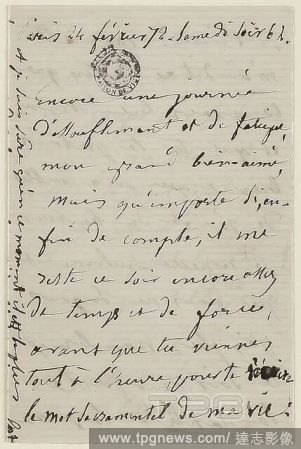 Paris 24 février 72. Samedi soir 6 h.
Encore une journée
d'essoufflement et de fatigue,
mon grand bien-aimé,
mais qu'importe si, en-
fin de compte, il me
reste ce soir encore assez
de temps et de forces,
avant que tu viennes
tout à l'heure pour te
le mot sacramentel de ma vie :
Et je suis sûre qu'en ce moment il est
TPG
www.tpgnews.com/達志影像